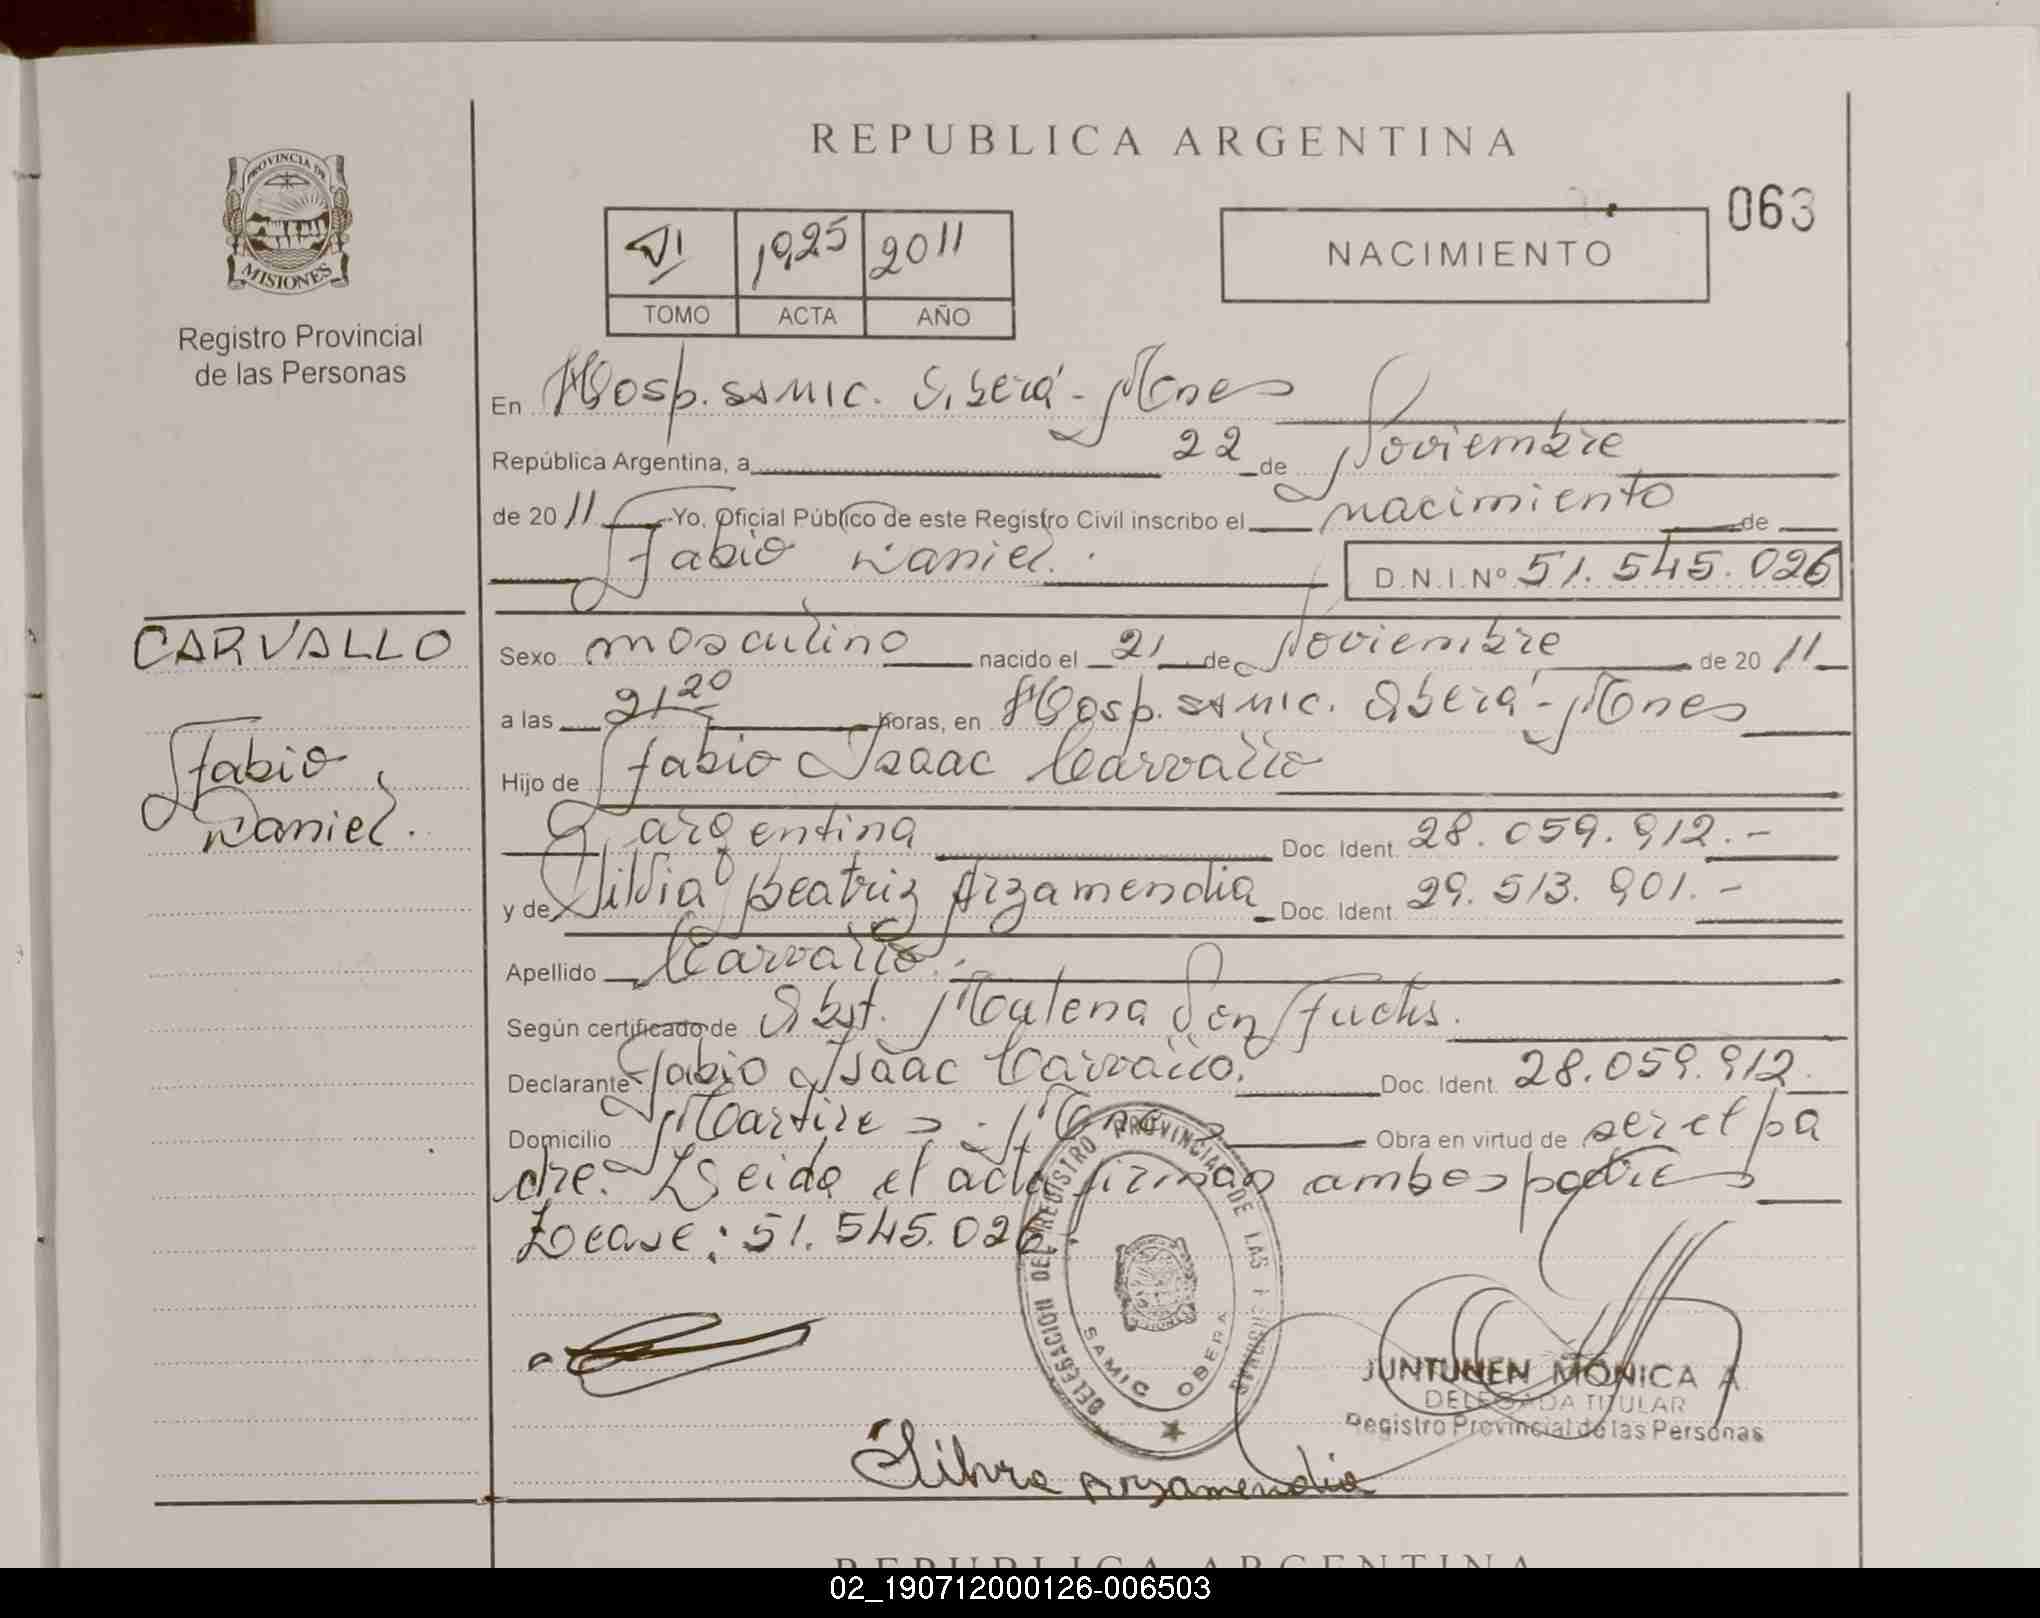 REPUBLICA ARGENTINA
063
PROVINCIA DE
MISIONES
Registro Provincial
de las Personas
VI 1025 2011
TOMO ACTA AÑO
NACIMIENTO
En Hosp. SAMIC. Oberá - Mnes
República Argentina, a 22 de Noviembre
de 2011 Yo, Oficial Público de este Registro Civil inscribo el nacimiento de
Fabio Daniel. D.N.I. Nº 51.545.026
CARVALLO
Fabio
Daniel.
Sexo masculino nacido el 21 de Noviembre de 2011
a las 21 20 horas, en Hosp. SAMIC. Oberá - Mnes
Hijo de Fabio Isaac Carvallo
argentina Doc. Ident. 28.059.912.-
y de Silvia Beatriz Arzamendia Doc. Ident. 29.513.901.-
Apellido Carvallo.
Según certificado de Obst. Malena Fuchs.
Declarante Fabio Isaac Carvallo. Doc. Ident. 28.059.912.
Domicilio Martires - Mnes Obra en virtud de ser el pa
dre. Leida el acta firman ambos padres
Lease: 51.545.026
DELEGACION DEL REGISTRO PROVINCIAL DE LAS PERSONAS
SAMIC OBERA
MISIONES
JUNTUNEN MONICA A.
DELEGADA TITULAR
Registro Provincial de las Personas
Silvia Arzamendia
REPUBLICA ARGENTINA
02_190712000126-006503